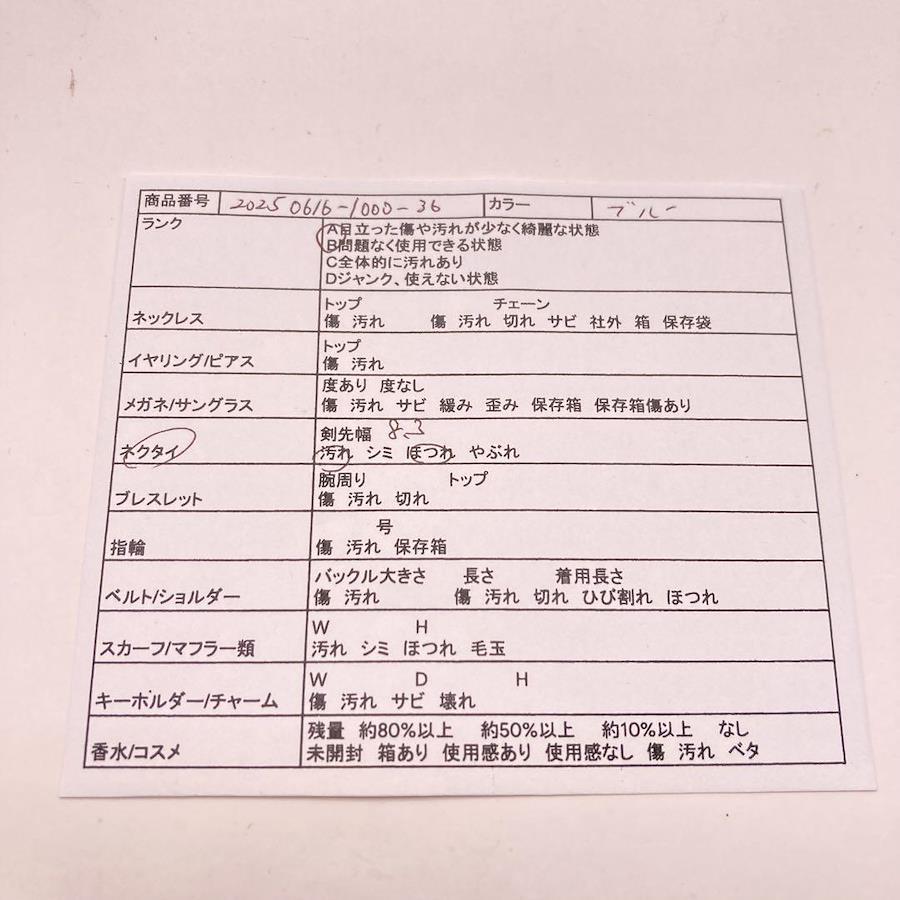 商品番号 20250616-1000-36 カラー ブルー
ランク A目立った傷や汚れが少なく綺麗な状態
B問題なく使用できる状態
C全体的に汚れあり
Dジャンク、使えない状態
トップ チェーン
ネックレス 傷 汚れ 傷 汚れ 切れ サビ 社外 箱 保存袋
トップ
イヤリング/ピアス 傷 汚れ
度あり 度なし
メガネ/サングラス 傷 汚れ サビ 緩み 歪み 保存箱 保存箱傷あり
剣先幅 8.3
ネクタイ 汚れ シミ ほつれ やぶれ
腕周り トップ
ブレスレット 傷 汚れ 切れ
号
指輪 傷 汚れ 保存箱
バックル大きさ 長さ 着用長さ
ベルト/ショルダー 傷 汚れ 傷 汚れ 切れ ひび割れ ほつれ
W H
スカーフ/マフラー類 汚れ シミ ほつれ 毛玉
W D H
キーホルダー/チャーム 傷 汚れ サビ 壊れ
残量 約80%以上 約50%以上 約10%以上 なし
香水/コスメ 未開封 箱あり 使用感あり 使用感なし 傷 汚れ ベタ